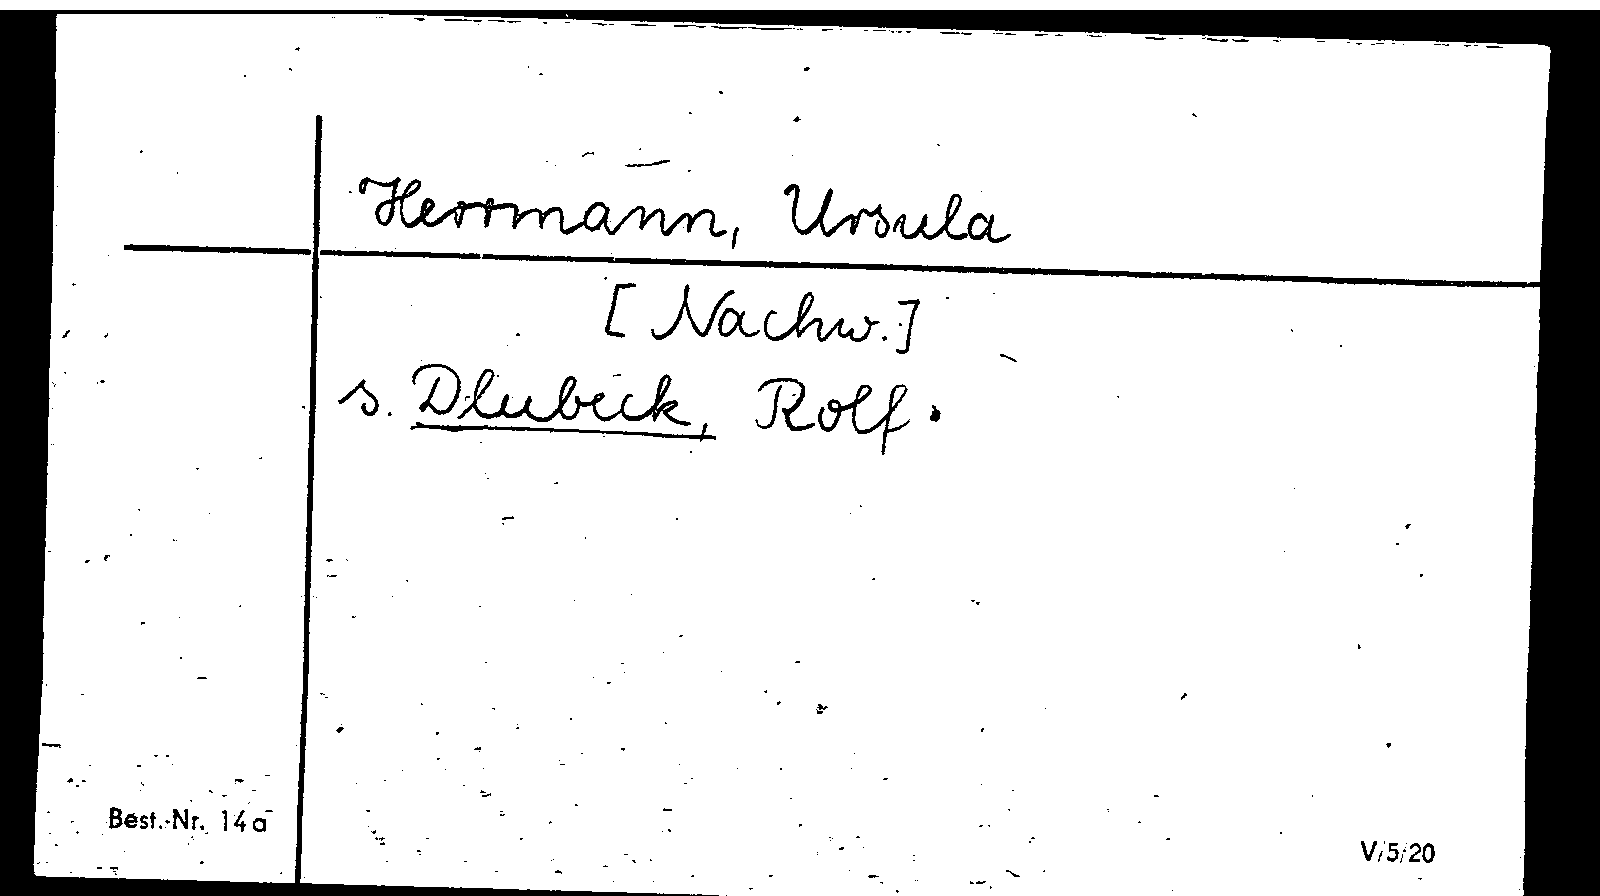 Herrmann, Ursula
[Nachw.]
s. Dlubeck, Rolf.
Best.-Nr. 14a
V/5/20